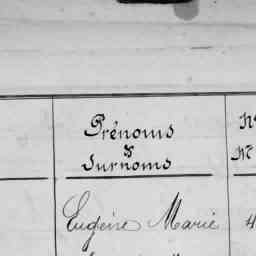 Prénoms
&
Surnoms
Eugène Marie